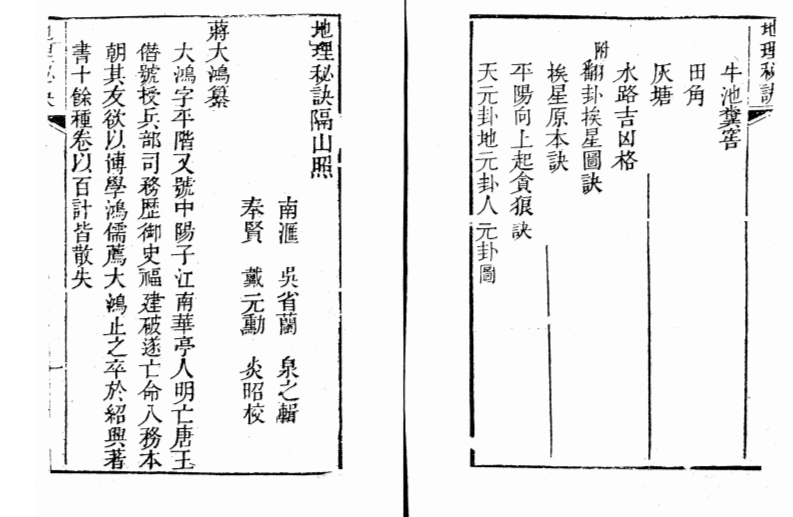 地理秘訣
牛池糞窖
田角
灰塘
水路吉凶格
附翻卦挨星圖訣
挨星原本訣
平陽向上起貪狼訣
天元卦地元卦人元卦圖
地理秘訣隔山照
南滙 吳省蘭 泉之輯
奉賢 戴元勳 炎昭校
蔣大鴻纂
大鴻字平階又號中陽子江南華亭人明亡唐王
僭號授兵部司務歷御史福建破遂亡命入務本
朝其友欲以博學鴻儒薦大鴻止之卒於紹興著
書十餘種卷以百計皆散失